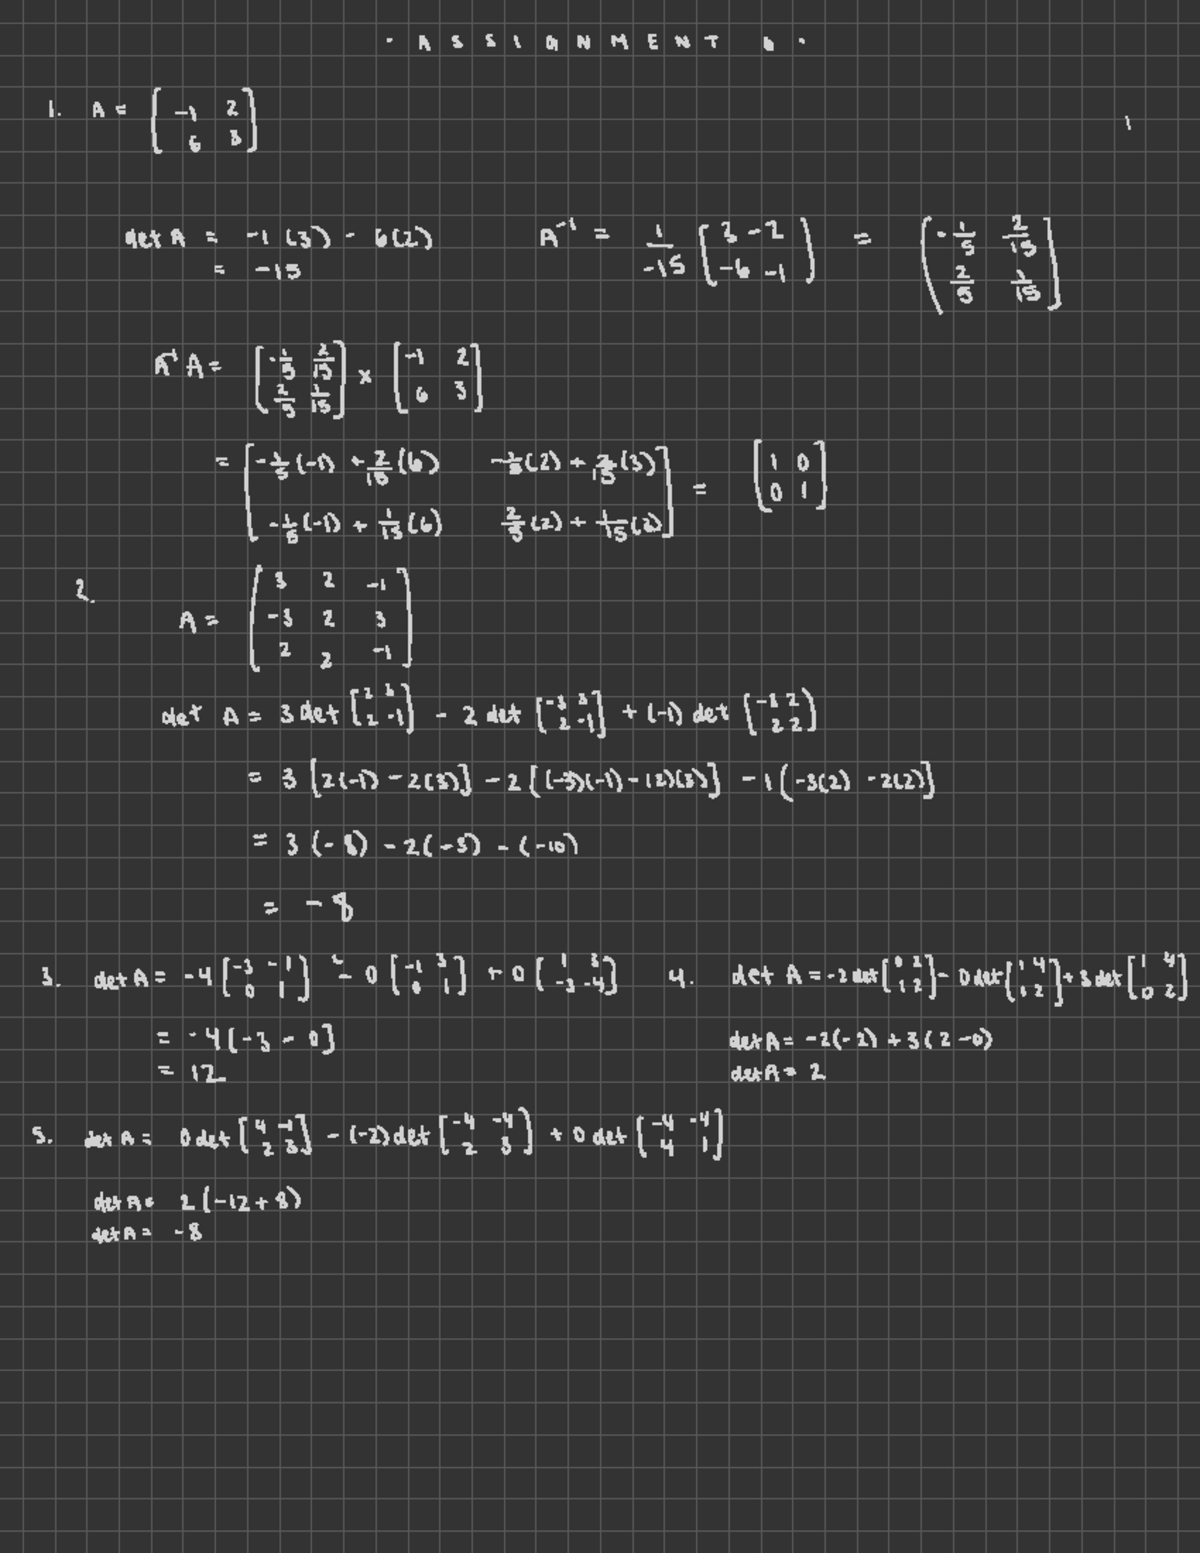 · ASSIGNMENT 6 ·
1. A = [ -1 2
6 3 ]
det A = -1 (3) - 6(2)
= -15
A⁻¹ = 1/-15 [ 3 -2
-6 -1 ] = [ -1/5 2/15
2/5 1/15 ]
A⁻¹ A = [ -1/5 2/15
2/5 1/15 ] x [ -1 2
6 3 ]
= [ -1/5 (-1) + 2/15 (6) -1/5 (2) + 2/15 (3)
-1/5 (-1) + 1/15 (6) 2/5 (2) + 1/15 (3) ] = [ 1 0
0 1 ]
2. A = [ 3 2 -1
-3 2 3
2 2 -1 ]
det A = 3 det [ 2 3
2 -1 ] - 2 det [ -3 3
2 -1 ] + (-1) det [ -3 2
2 2 )
= 3 [2(-1) - 2(3)] - 2[(-3)(-1) - (2)(3)] - 1(-3(2) - 2(2)]
= 3 (-8) - 2(-3) - (-10)
= -8
3. det A = -4 [ -3 -1
0 1 ] - 0 [ -1 3
0 1 ] + 0 [ 1 3
-3 -4 ]
= -4[-3 - 0]
= 12
4. det A = -2 det [ 0 2
1 2 ] - 0 det [ 1 4
1 2 ] + 3 det [ 1 4
0 2 ]
det A = -2(-2) + 3(2 - 0)
det A = 2
5. det A = 0 det [ 4 -1
2 3 ] - (-2) det [ -4 -4
2 3 ] + 0 det [ -4 -4
4 1 ]
det A = 2 (-12 + 8)
det A = -8